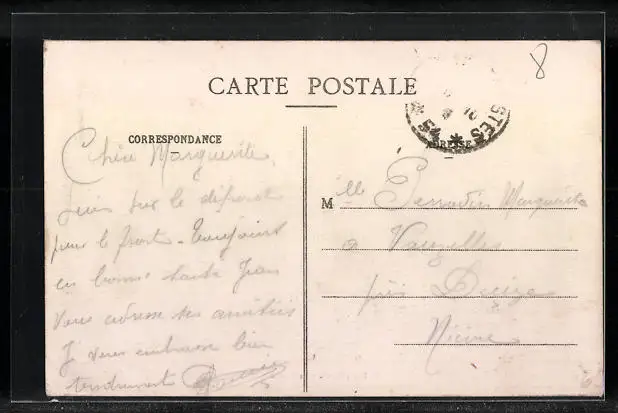 8
CARTE POSTALE
STES 54
CORRESPONDANCE
ADRESSE
Chère Marguerite
suis sur le départ
pour le front - Toujours
en bonne santé Jean
vous adresse ses amitiés
Je vous embrasse bien
tendrement
M lle Perradin Marguerite
à Vauzelles
près Decize
Nièvre